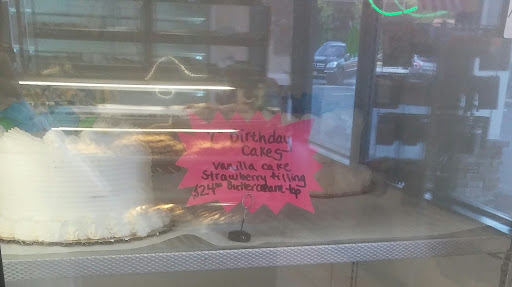 7" Birthday
Cakes
vanilla cake
strawberry filling
$24.00 Buttercream top